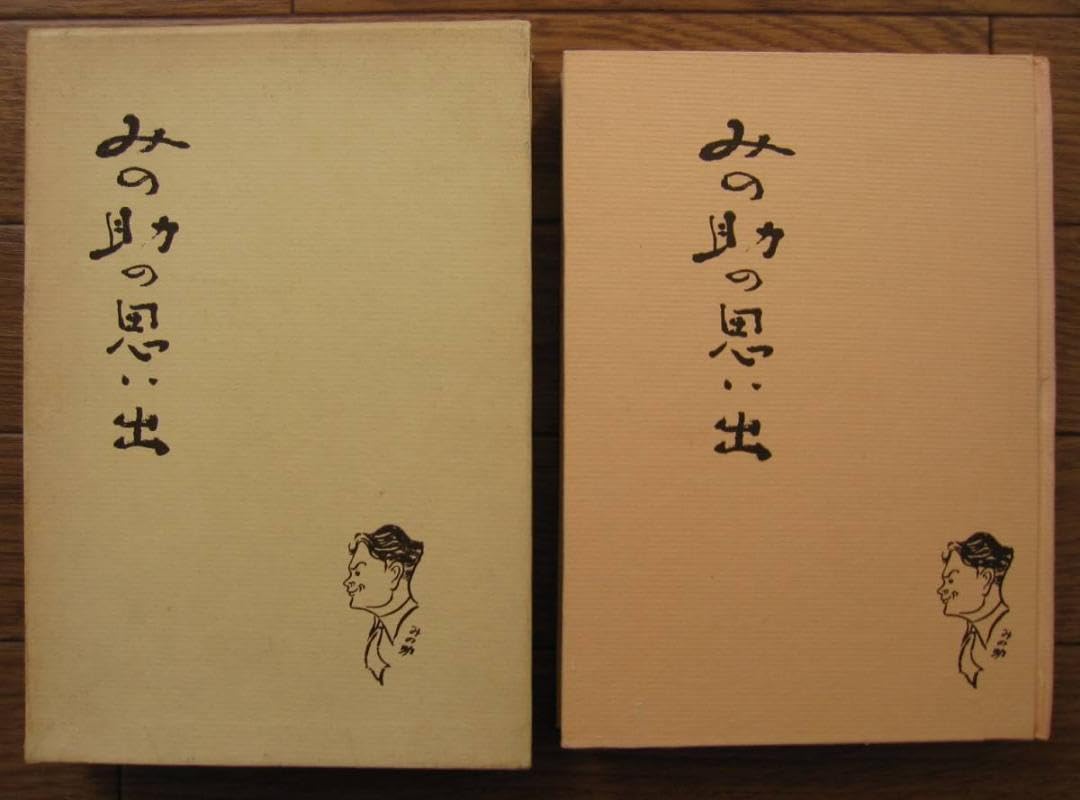 みの助の思い出
みの助
みの助の思い出
みの助